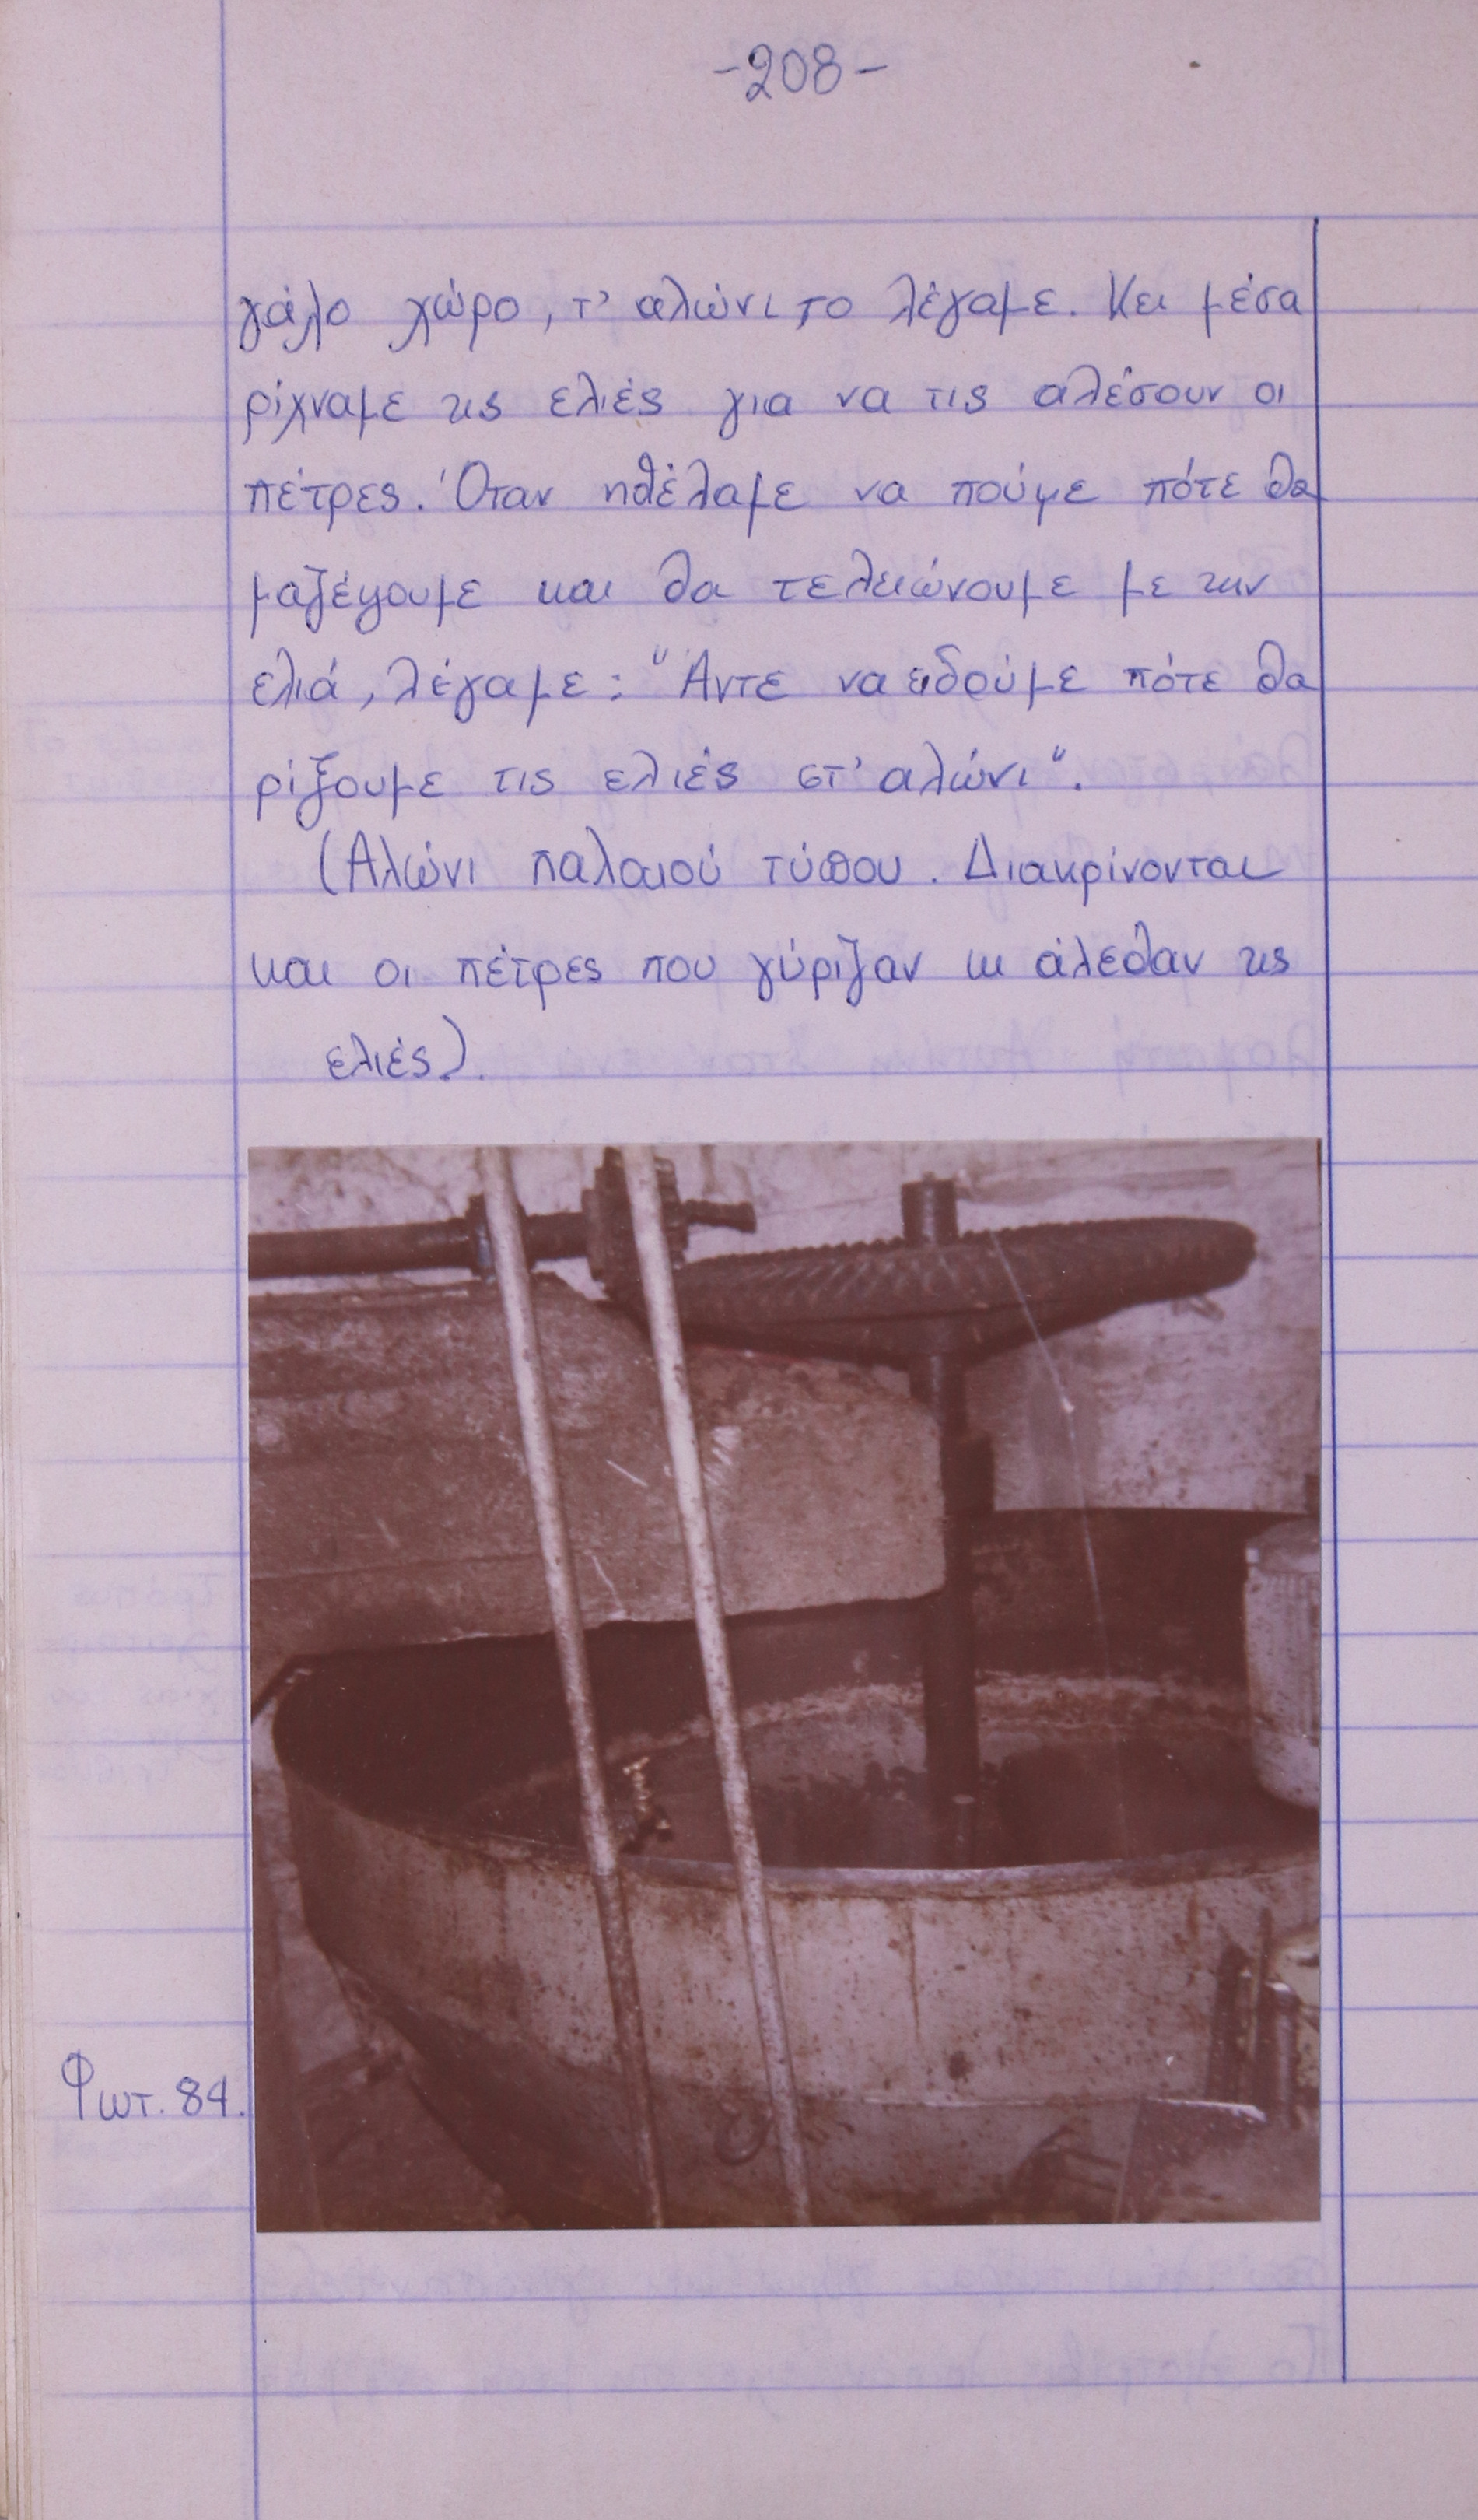 -208-
γάλο χώρο, τ' αλώνι το λέγαμε. Κει μέσα
ρίχναμε τις ελιές για να τις αλέσουν οι
πέτρες. Όταν ηθέλαμε να πούμε πότε θα
μαζέψουμε και θα τελειώνουμε με την
ελιά, λέγαμε: "Άντε να ειδρούμε πότε θα
ρίξουμε τις ελιές στ' αλώνι".
(Αλώνι παλαιού τύπου. Διακρίνονται
και οι πέτρες που γύριζαν κι άλεθαν τις
ελιές).
Φωτ. 84.